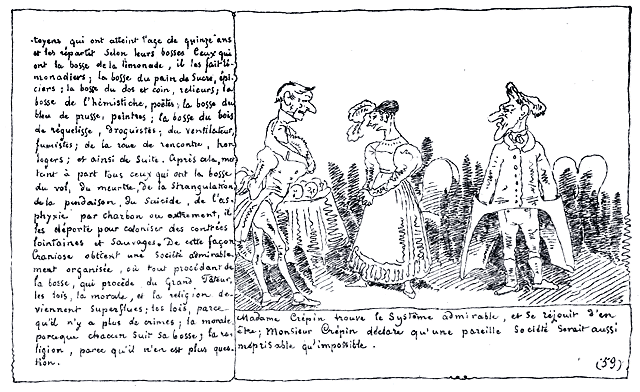 -toyens qui ont atteint l'age de quinze ans
et les répartit selon leurs bosses. Ceux qui
ont la bosse de la limonade, il les fait li-
monadiers; la bosse du pain de sucre, épi-
ciers; la bosse du dos et coin, relieurs; la
bosse de l'hémistiche, poëtes; la bosse du
bleu de prusse, peintres; la bosse du bois
de réguelisse, droguistes; du ventilateur,
fumistes; de la roue de rencontre, hor-
logers; et ainsi de suite. Après cela, met
tant à part tous ceux qui ont la bosse
du vol, du meurtre, de la strangulation
de la pendaison, du suicide, de l'as-
physie par charbon ou autrement, il
les déporte pour coloniser des contrées
lointaines et sauvages. De cette façon
Craniose obtient une société admirable-
ment organisée, où tout procédant de
la bosse, qui procède du Grand Tâteur,
les lois, la morale, et la religion de-
viennent superflues; les lois, parce-
qu'il n'y a plus de crimes; la morale,
parceque chacun suit sa bosse; la re-
ligion, parce qu'il n'en est plus ques-
tion.
Madame Crépin trouve le Système admirable, et se réjouit d'en
être; Monsieur Crépin déclare qu'une pareille Société serait aussi
méprisable qu'impossible.
(59)